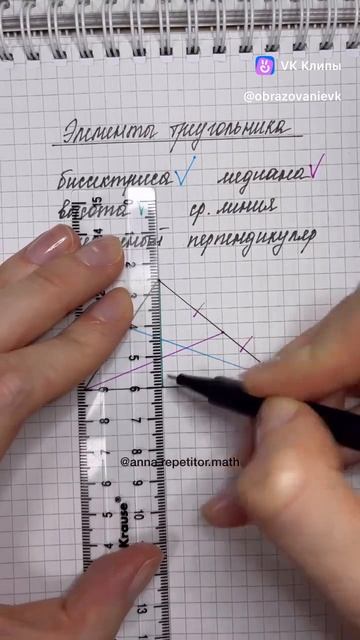 VK Клипы
@obrazovanievk
Элементы треугольника
биссектриса медиана
высота ср. линия
перпендикуляр
@anna.repetitor.math
Krause